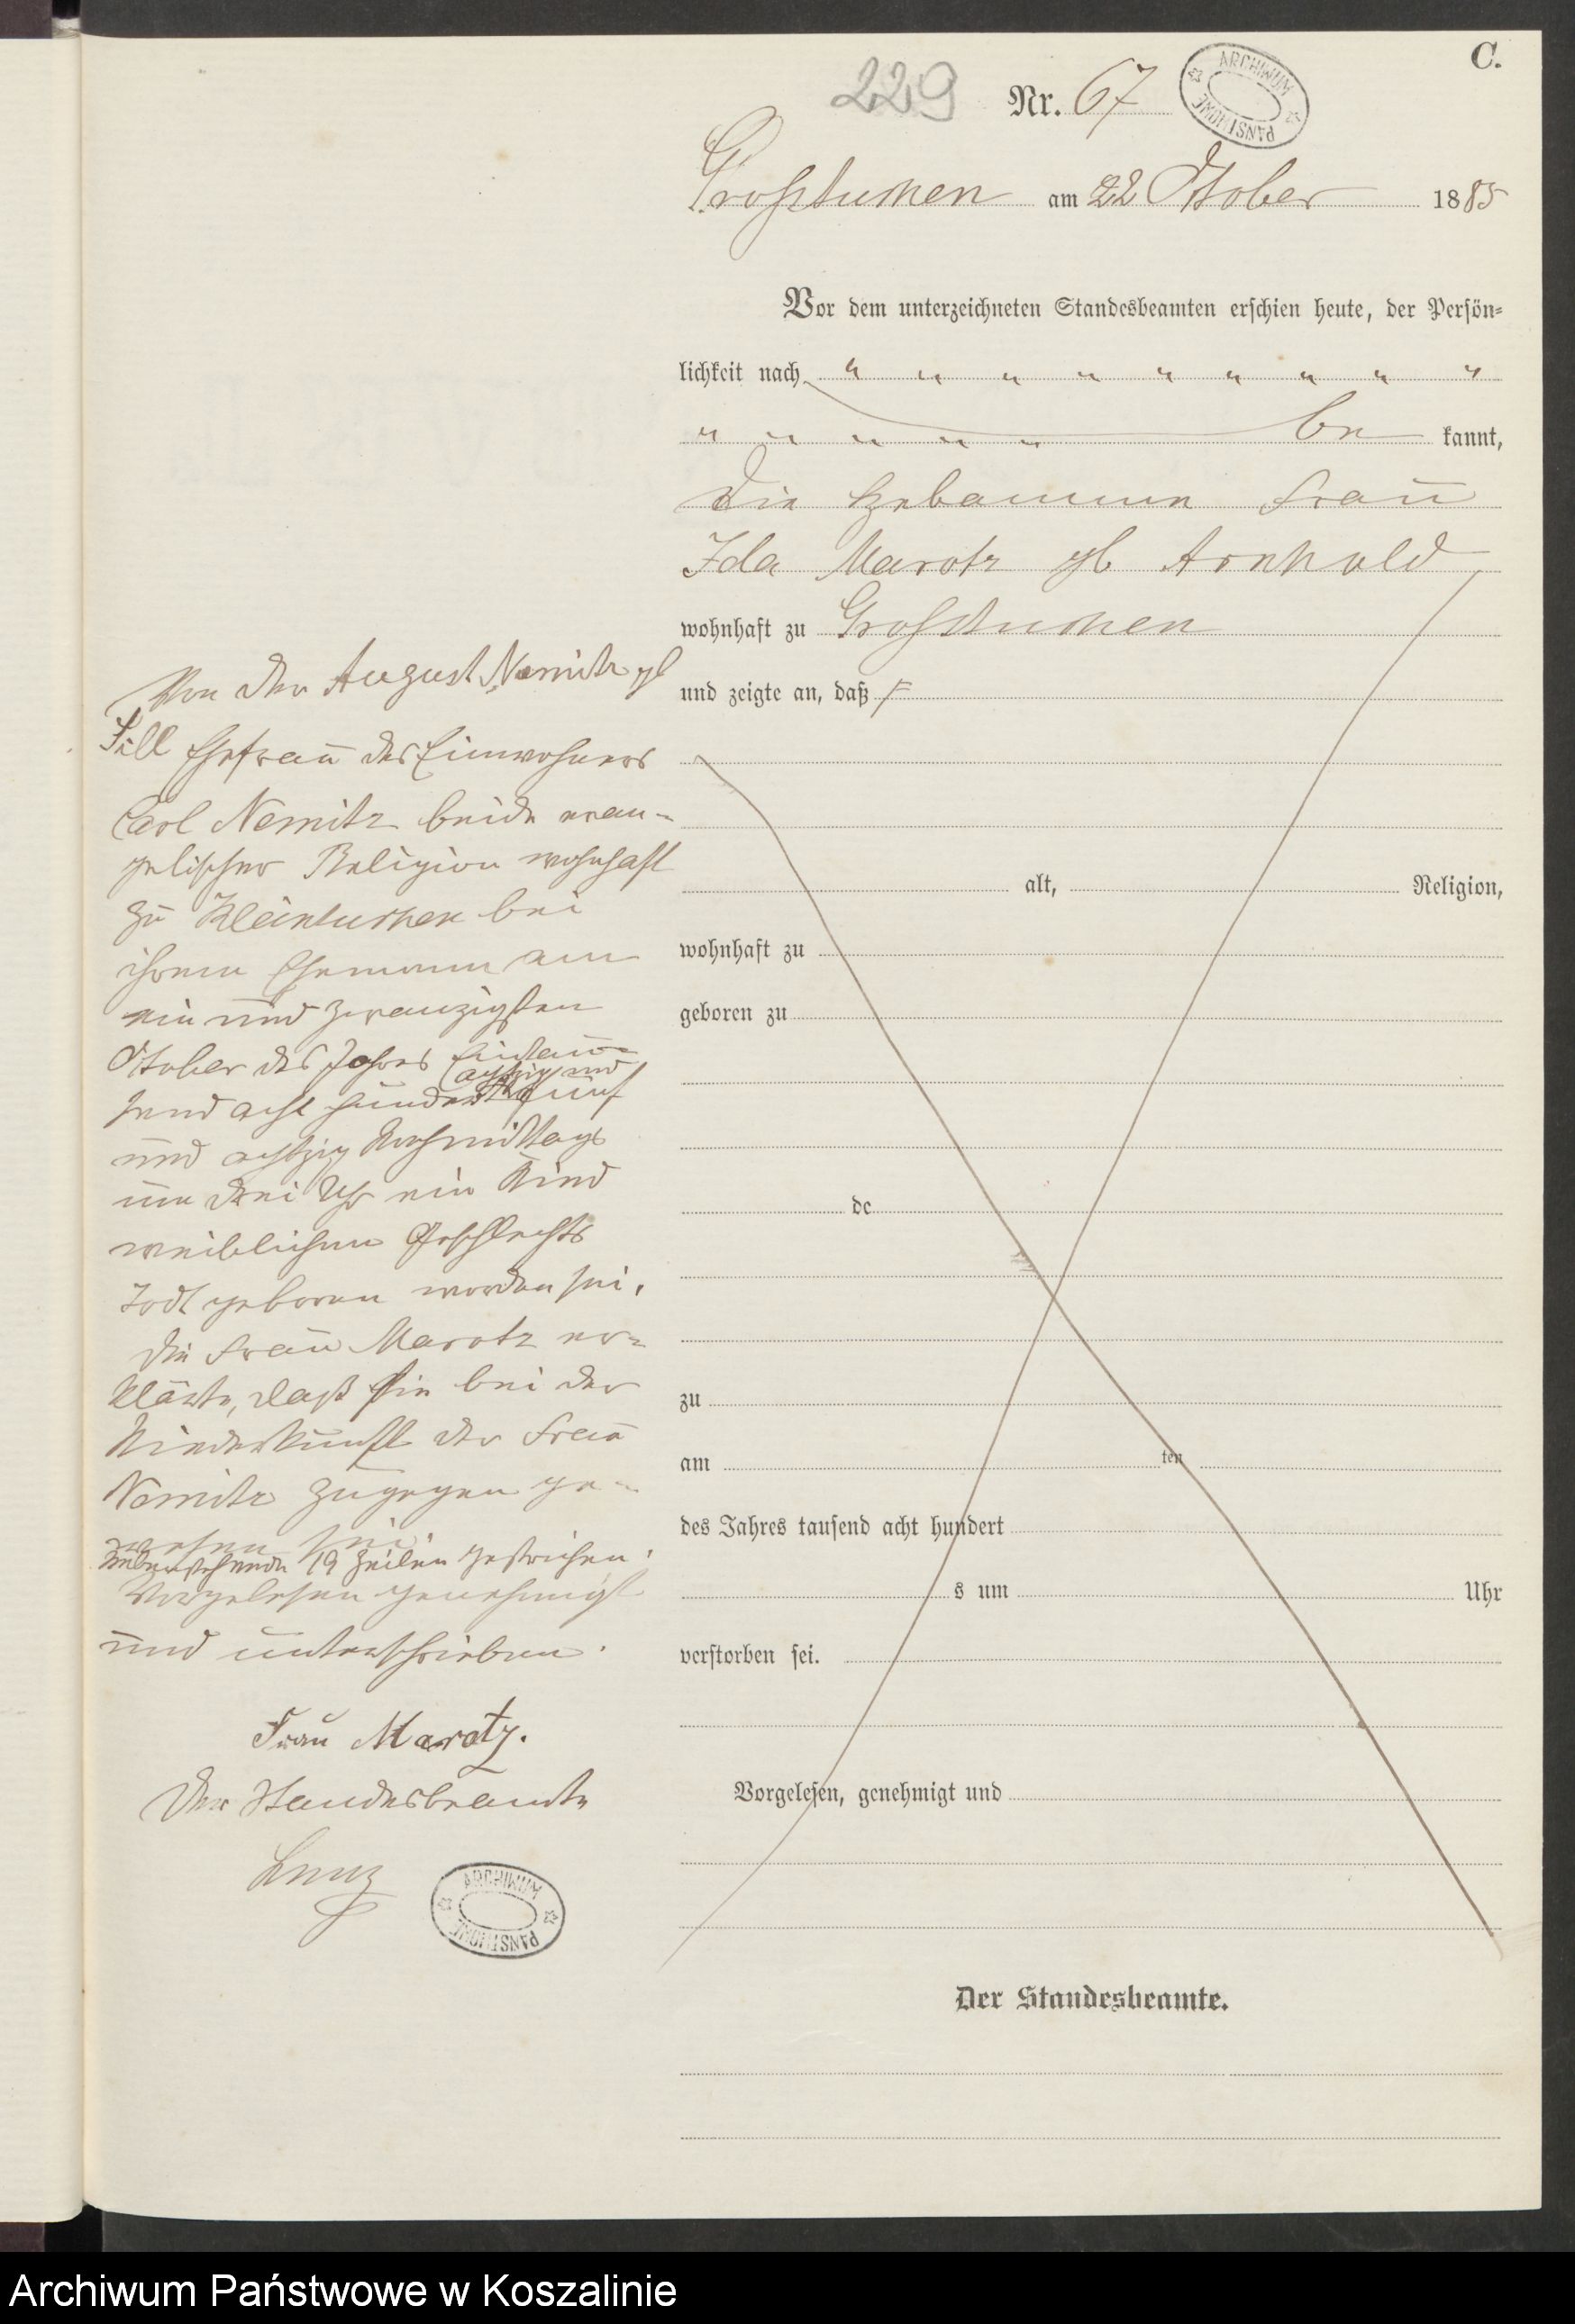 C.
229 Nr. 67
ARCHIWUM PAŃSTWOWE
Grosstuchen am 22 October 1885
Vor dem unterzeichneten Standesbeamten erschien heute, der Persön-
lichkeit nach
be kannt,
die Hebamme Frau
Ida Marotz gb Arnhold
wohnhaft zu Grosstuchen
und zeigte an, daß
alt, Religion,
wohnhaft zu
geboren zu
de
zu
am ten
des Jahres tausend acht hundert
s um Uhr
verstorben sei.
Vorgelesen, genehmigt und
Der Standesbeamte.
Von der August Nemitz gb
Ehefrau des Einwohners
Carl Nemitz beide evan-
gelischer Religion wohnhaft
zu Kleintuchen bei
ihrem Ehemann am
ein und zwanzigsten
October des Jahres Eintau-
send acht hundert fünf
und achtzig Nachmittags
um drei Uhr ein Kind
weiblichen Geschlechts
todt geboren worden sei.
Die Frau Marotz er-
klärte, daß sie bei der
Niederkunft der Frau
Nemitz zugegen ge-
wesen sei.
Nebenstehende 19 Zeilen gestrichen.
Vorgelesen genehmigt
und unterschrieben.
Frau Marotz.
Der Standesbeamte
ARCHIWUM PAŃSTWOWE
Archiwum Państwowe w Koszalinie